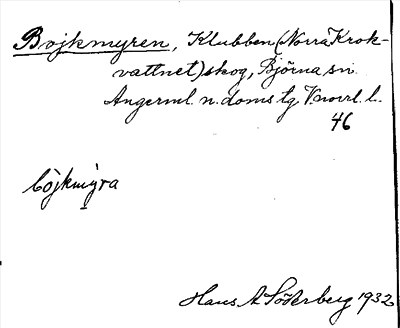 Bojkmyren, Klubben (Norra Krok-
vattnet) skog, Björna sn
Ångerml. n. doms tg V.norrl. l.
46
bòjkmy̱ra
Hans A Söderberg 1932